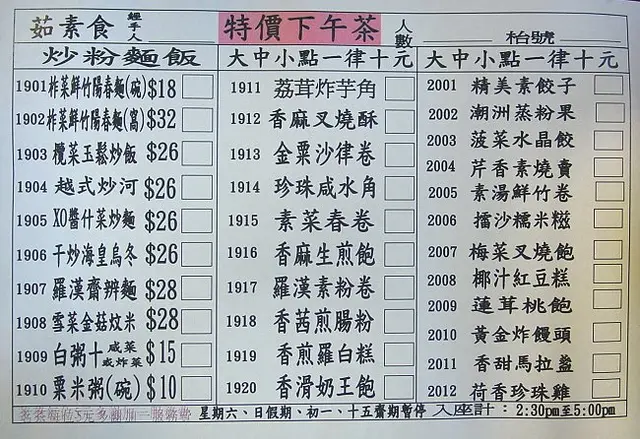 茹素食 經手人 特價下午茶 人數 枱號
炒粉麵飯 大中小點一律十元 大中小點一律十元
1901 炸菜鮮竹陽春麵(碗) $18
1902 炸菜鮮竹陽春麵(窩) $32
1903 欖菜玉鬆炒飯 $26
1904 越式炒河 $26
1905 XO醬什菜炒麵 $26
1906 干炒海皇烏冬 $26
1907 羅漢齋辦麵 $28
1908 雪菜金菇炆米 $28
1909 白粥十鹹菜或炸菜 $15
1910 粟米粥(碗) $10
1911 荔茸炸芋角
1912 香麻叉燒酥
1913 金粟沙律卷
1914 珍珠咸水角
1915 素菜春卷
1916 香麻生煎飽
1917 羅漢素粉卷
1918 香茜煎腸粉
1919 香煎羅白糕
1920 香滑奶王飽
2001 精美素餃子
2002 潮洲蒸粉果
2003 菠菜水晶餃
2004 芹香素燒賣
2005 素湯鮮竹卷
2006 擂沙糯米糍
2007 梅菜叉燒飽
2008 椰汁紅豆糕
2009 蓮茸桃飽
2010 黃金炸饅頭
2011 香甜馬拉盞
2012 荷香珍珠雞
星期六、日假期、初一、十五齋期暫停 入座計：2:30pm至5:00pm